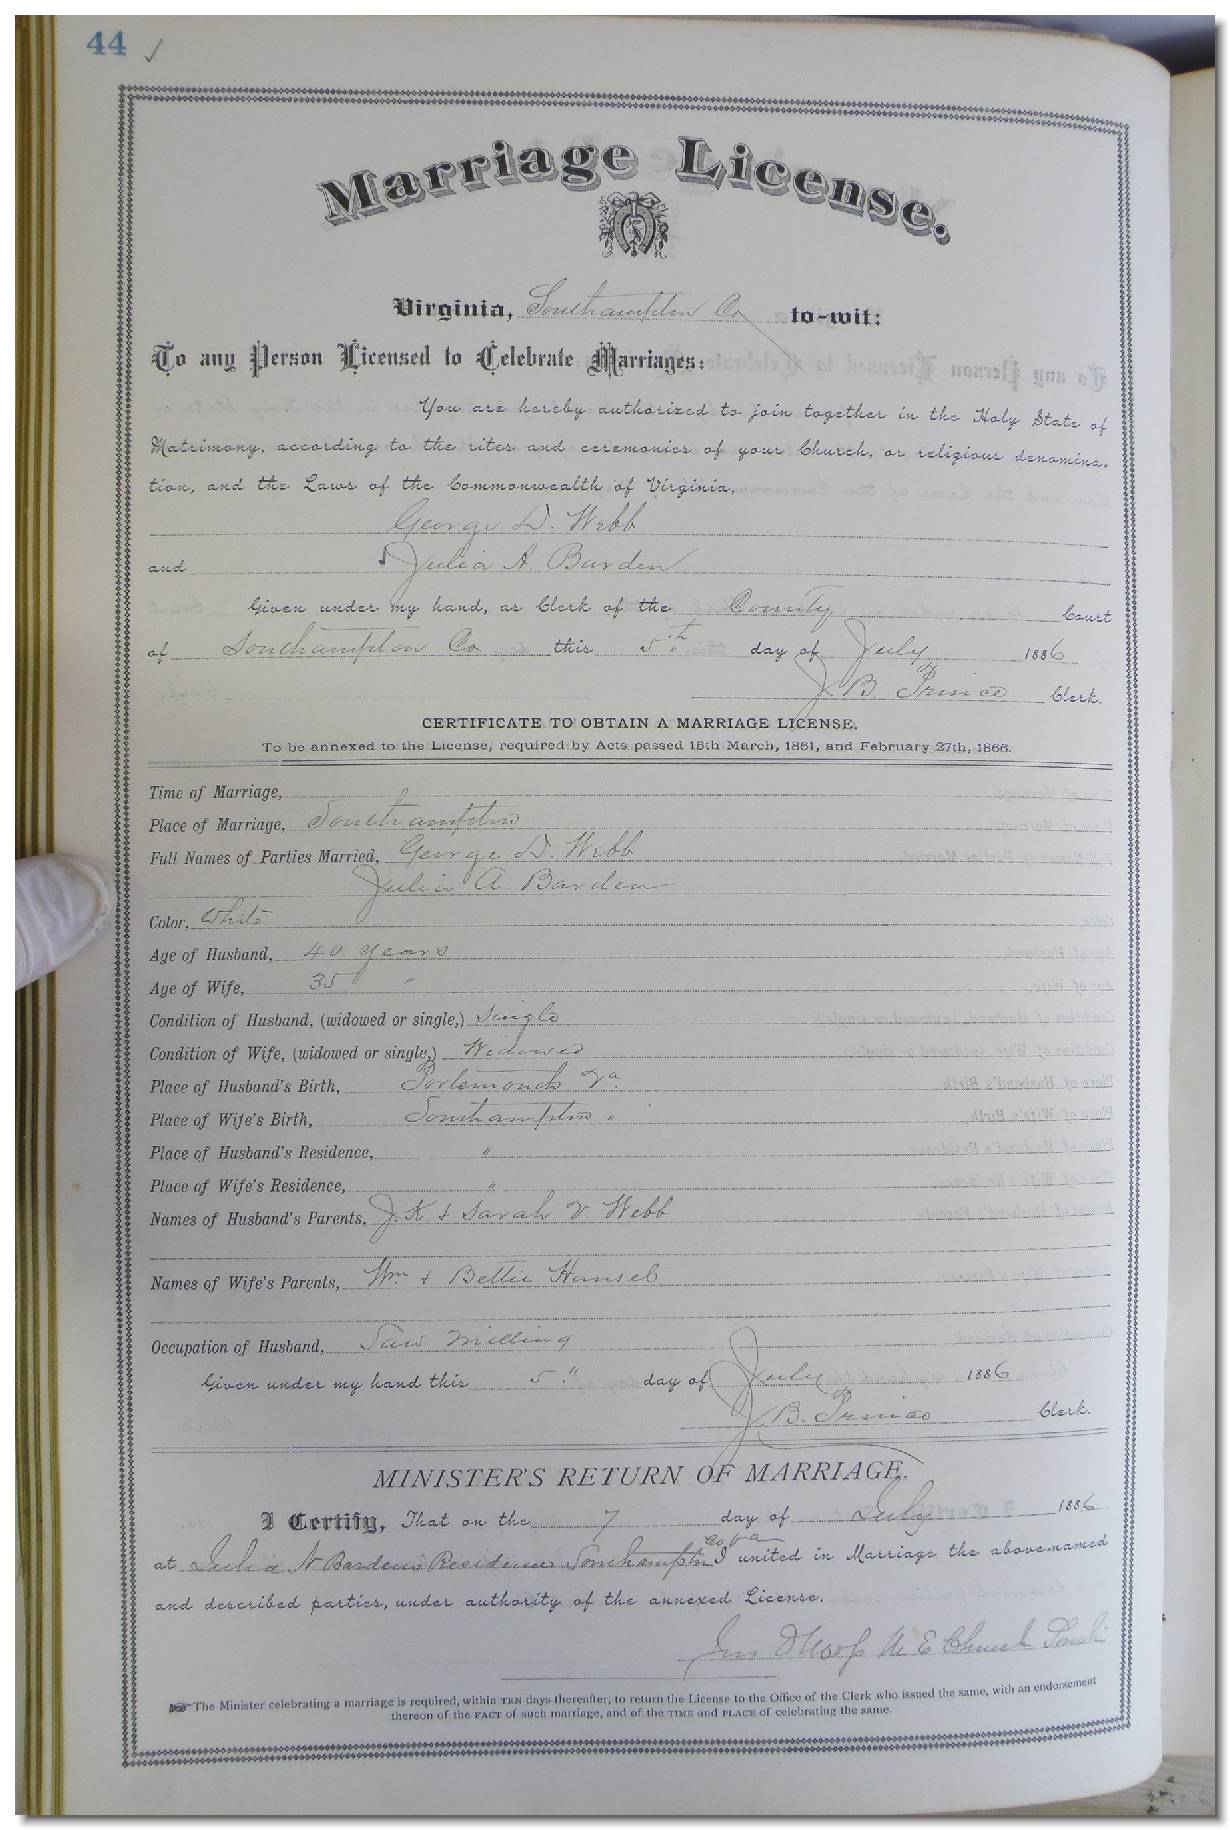 44 ✓
Marriage License.
Virginia, Southampton Co to-wit:
To any Person Licensed to Celebrate Marriages:
You are hereby authorized to join together in the Holy State of
Matrimony, according to the rites and ceremonies of your Church, or religious denomina-
tion, and the Laws of the Commonwealth of Virginia,
George D. Webb
and Julia A Barden
Given under my hand, as Clerk of the County Court
of Southampton Co this 5th day of July 1886
J. B. Prince Clerk.
CERTIFICATE TO OBTAIN A MARRIAGE LICENSE.
To be annexed to the License, required by Acts passed 15th March, 1861, and February 27th, 1866.
Time of Marriage,
Place of Marriage, Southampton
Full Names of Parties Married, George D. Webb
Julia A Barden
Color, White
Age of Husband, 40 years
Age of Wife, 35 "
Condition of Husband, (widowed or single,) Single
Condition of Wife, (widowed or single,) Widowed
Place of Husband's Birth, Portsmouth Va.
Place of Wife's Birth, Southampton "
Place of Husband's Residence, "
Place of Wife's Residence, "
Names of Husband's Parents, J. K & Sarah V Webb
Names of Wife's Parents, Wm & Bettie Hansel
Occupation of Husband, Saw milling
Given under my hand this 5" day of July 1886
J B. Prince Clerk.
MINISTER'S RETURN OF MARRIAGE.
I Certify, That on the 7 day of July 1886
at Julia A Bardens Residence Southampton Co Va I united in Marriage the above-named
and described parties, under authority of the annexed License.
M E Church South
The Minister celebrating a marriage is required, within TEN days thereafter, to return the License to the Office of the Clerk who issued the same, with an endorsement
thereon of the FACT of such marriage, and of the TIME and PLACE of celebrating the same.